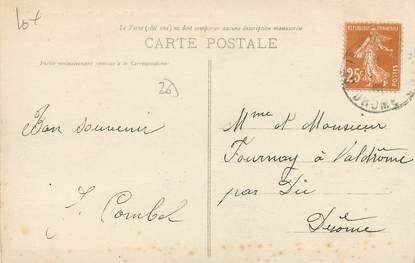 lot
Le Verso (côté vue) ne doit comporter aucune inscription manuscrite
CARTE POSTALE
Partie exclusivement réservée à la Correspondance
RÉPUBLIQUE FRANÇAISE
25c
POSTES
DROME
Bon souvenir
Mme et Monsieur
Fournay à Valdrôme
par Die
Drôme